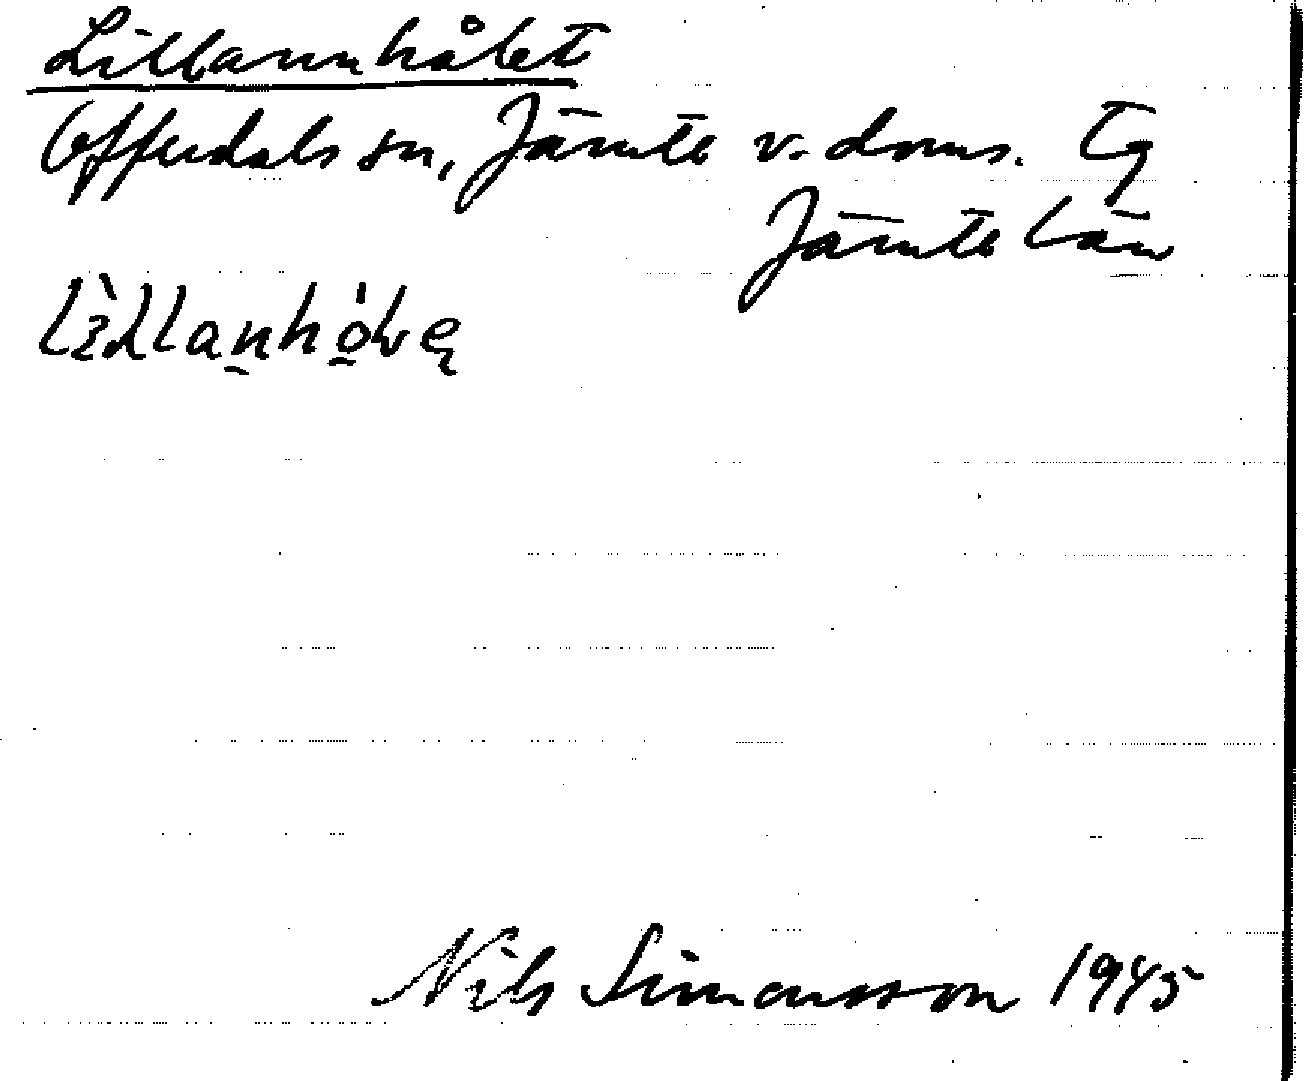 Lillannhålet
Offerdals sn, Jämte v. doms. Tg
Jämte län
Nils Simonsson 1945